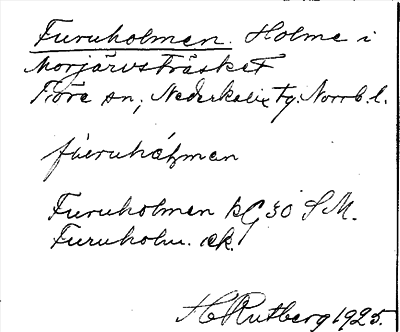 Furuholmen. Holme i
Morjärvsträsket
Töre sn, Nederkalix tg. Norrb. l.
Furuholmen kG 30 S M.
Furuholm. ek.
H Rutberg 1925.